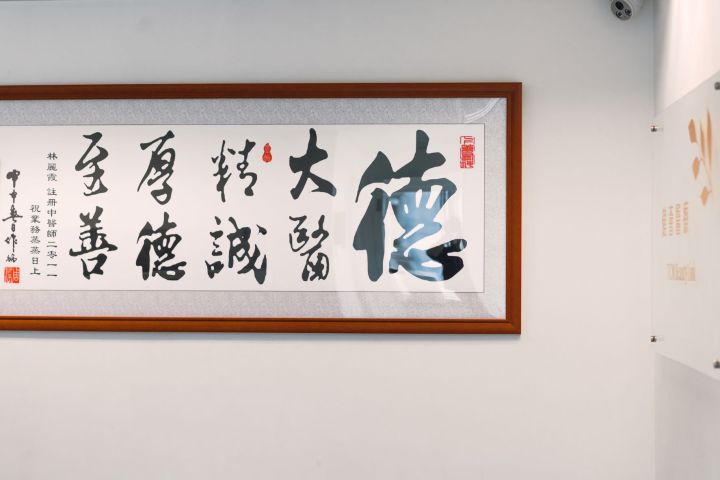 德
大醫
精誠
厚德
至善
林麗霞 註冊中醫師二零一一
祝業務蒸蒸日上